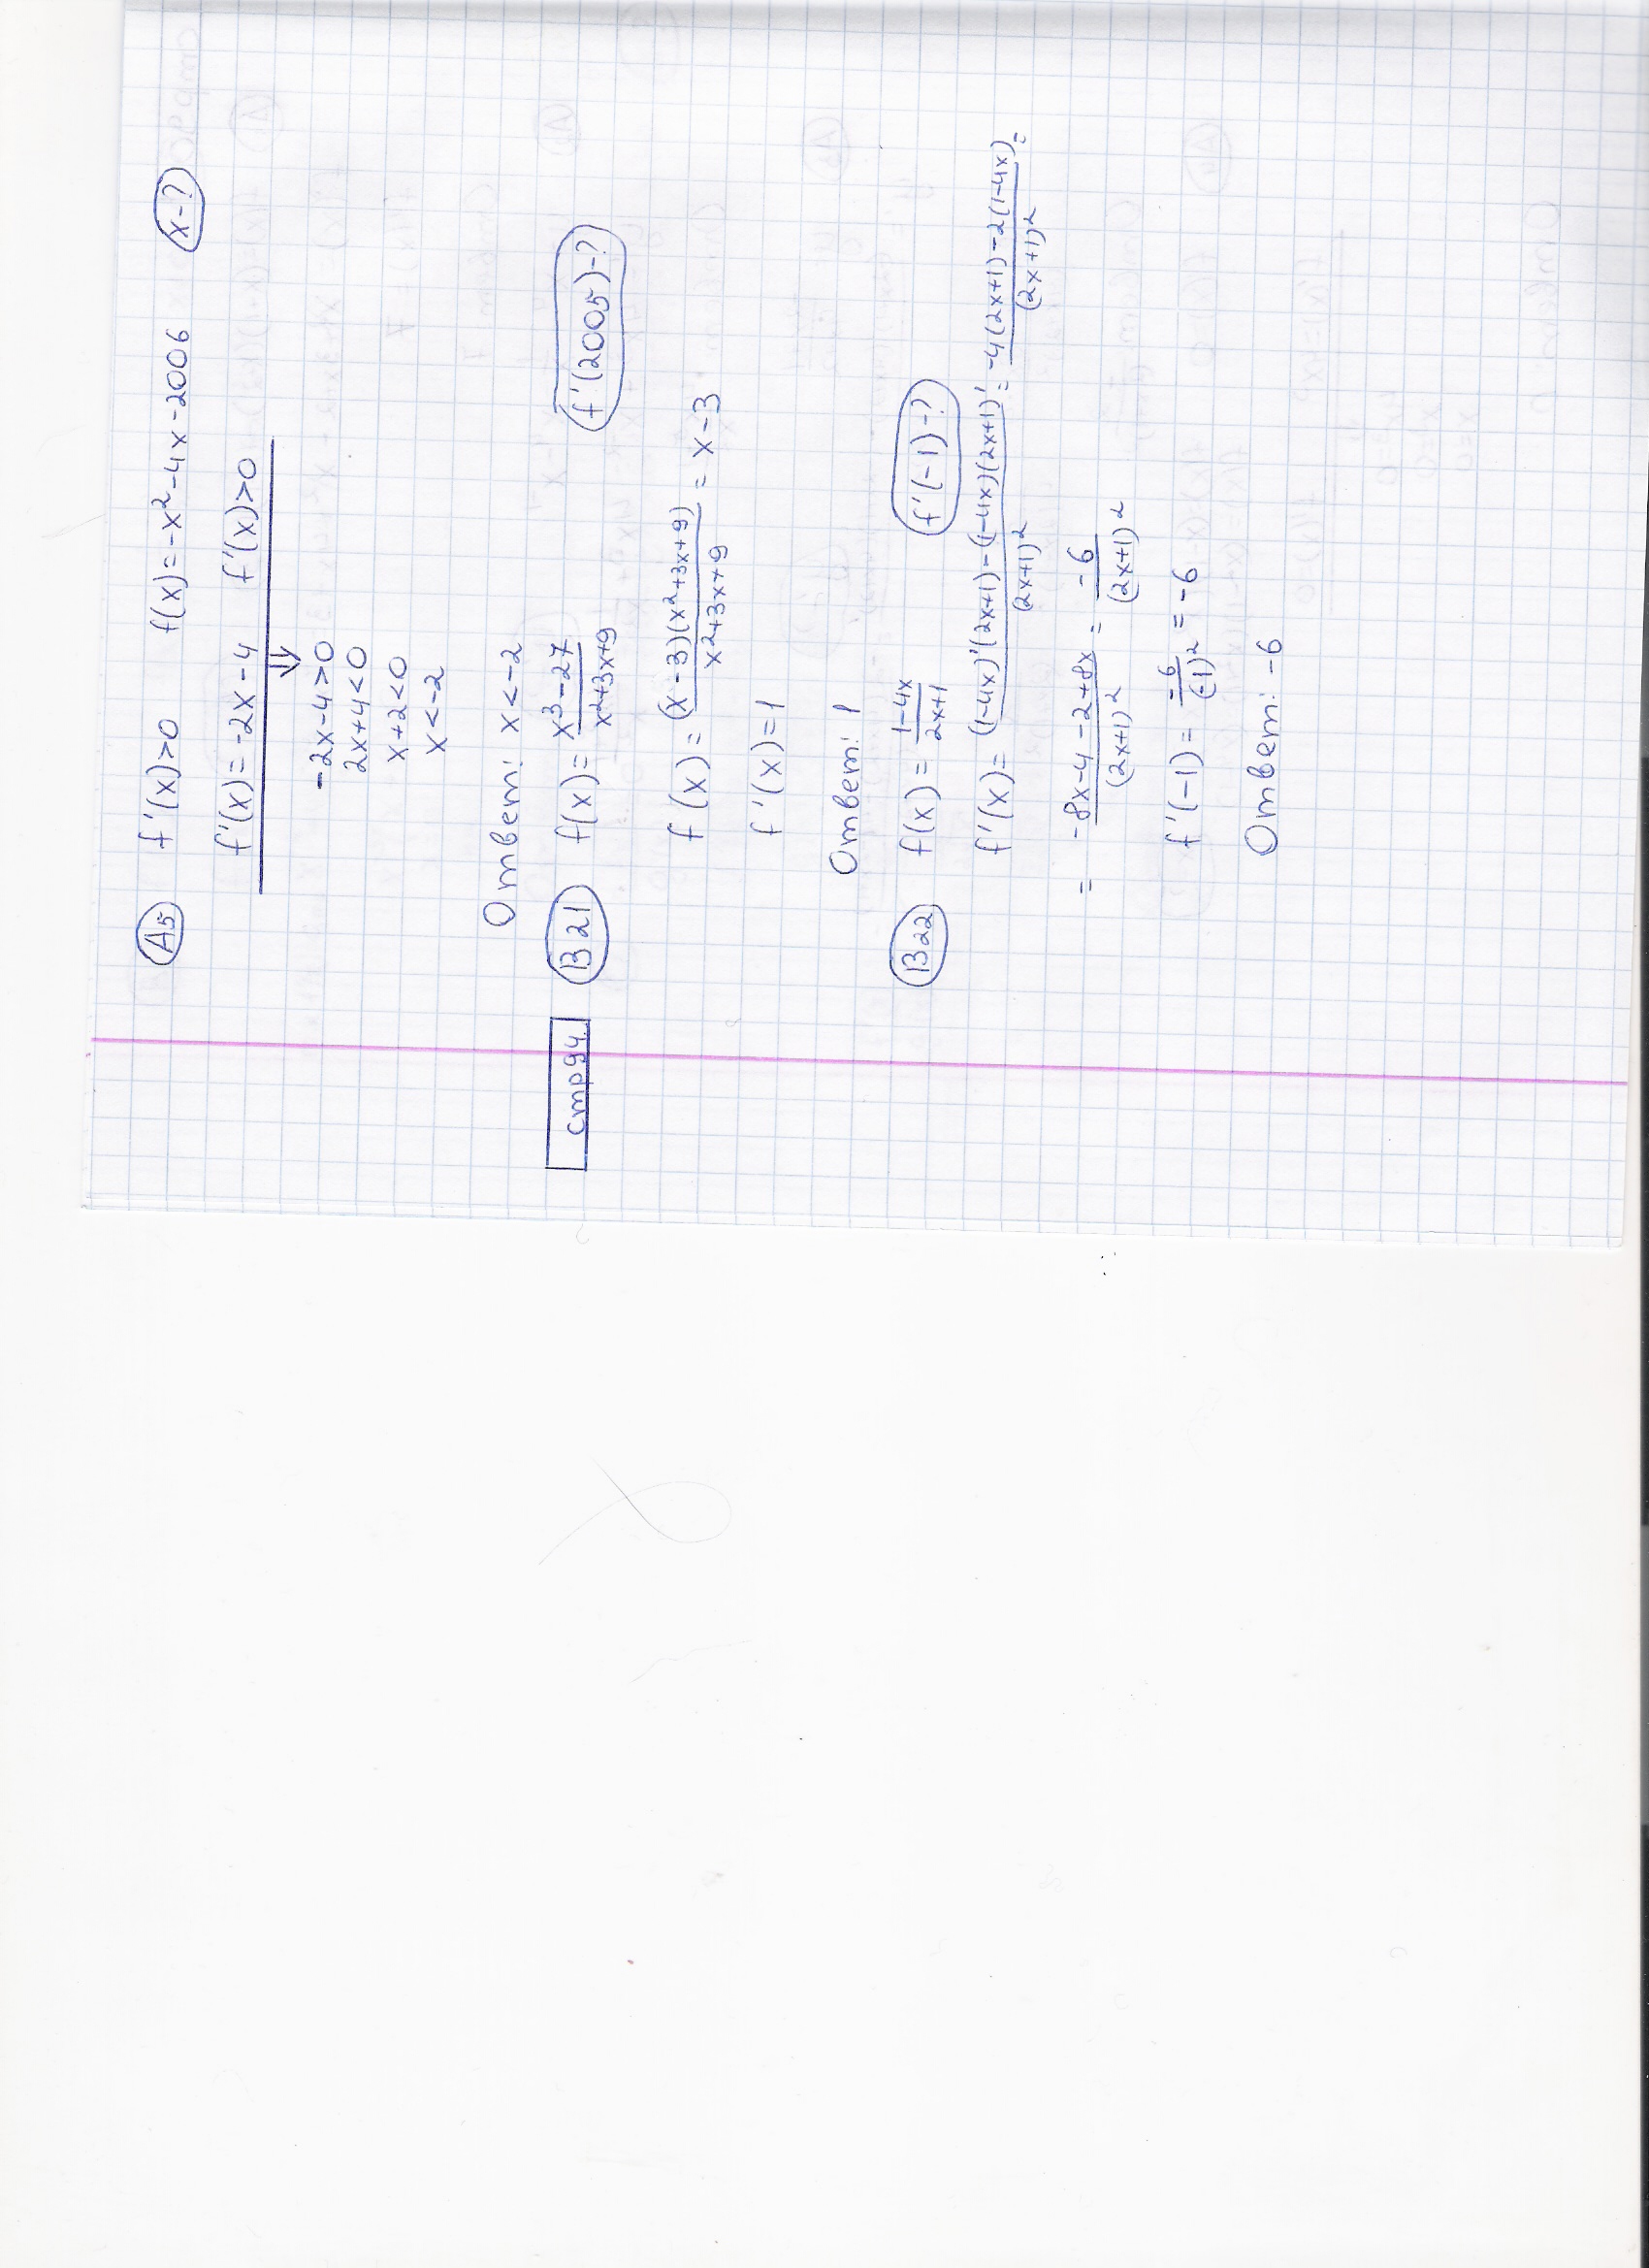 А5 f'(x)>0 f(x)=-x²-4x-2006 x-?
f'(x)=-2x-4 f'(x)>0
⇓
-2x-4>0
2x+4<0
x+2<0
x<-2
Ответ: x<-2
стр94. В21 f(x)=(x³-27)/(x²+3x+9) f'(2005)-?
f(x)=((x-3)(x²+3x+9))/(x²+3x+9)=x-3
f'(x)=1
Ответ: 1
В22 f(x)=(1-4x)/(2x+1) f'(-1)-?
f'(x)=((1-4x)'(2x+1)-(1-4x)(2x+1)')/(2x+1)²=(-4(2x+1)-2(1-4x))/(2x+1)²=
=(-8x-4-2+8x)/(2x+1)²=-6/(2x+1)²
f'(-1)=-6/(-1)²=-6
Ответ: -6